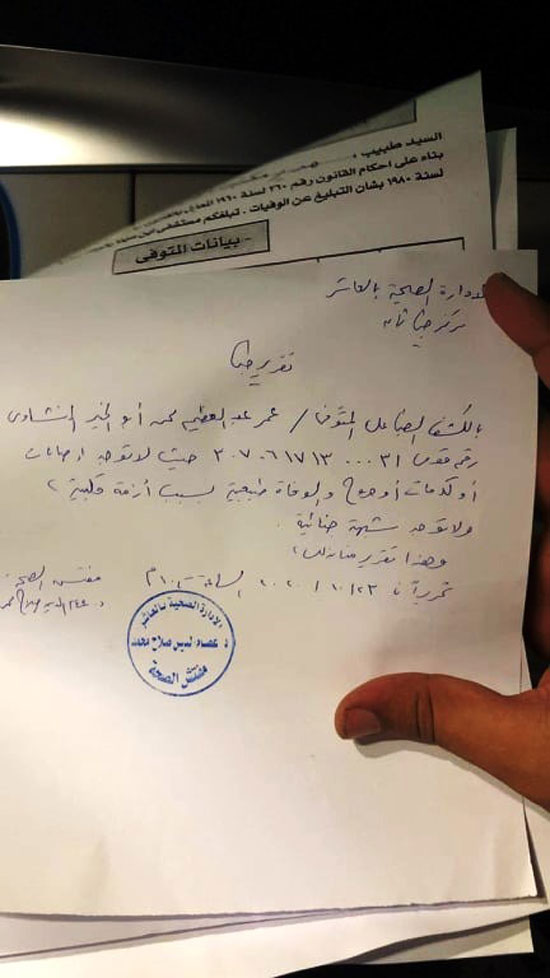 السيد طبيب
بناء على احكام القانون رقم ٢٦٠ لسنة ١٩٦٠
لسنة ١٩٨٠ بشان التبليغ عن الوفيات . تبلغكم مستشفى
- بيانات المتوفى
الادارة الصحية بالعاشر
مركز طبى ثان
تقرير طبى
بالكشف الظاهرى على المتوفى / عمر عبد العظيم محمد أبو الخير المنشاوى
رقم قومى ٣١ ٠٠٠ ٣٠٧٠٦١٧١٣ حيث لا توجد إصابات
أو كدمات أو جروح والوفاة طبيعية بسبب أزمة قلبية
ولا توجد شبهة جنائية
وهذا تقرير منا بذلك
تحريراً فى ٢٣ / ١٠ / ٢٠٢٠ الساعة
مفتش الصحة
د. عصام الدين صلاح محمد
الإدارة الصحية بالعاشر
د. عصام الدين صلاح محمد
مفتش الصحة